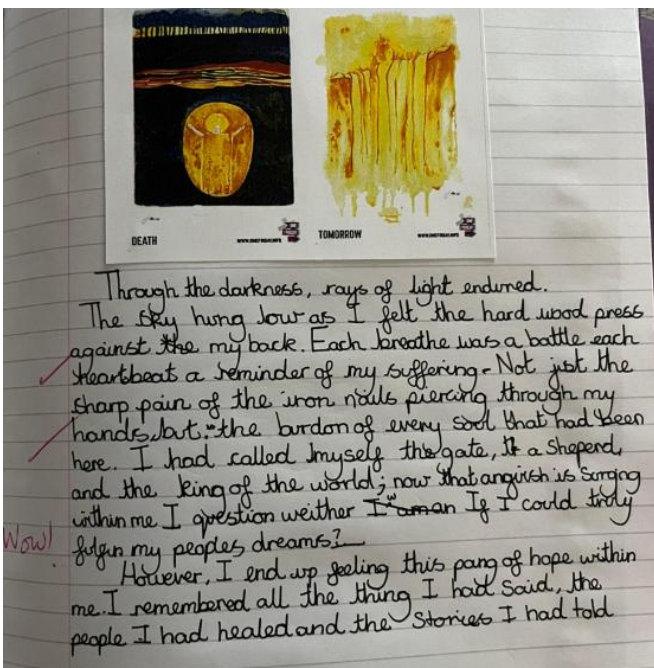 DEATH
TOMORROW
Through the darkness, rays of light endured.
The sky hung low as I felt the hard wood press
against the my back. Each breathe was a battle each
heartbeat a reminder of my suffering. Not just the
sharp pain of the iron nails piercing through my
hands, but the burdon of every soul that had been
here. I had called myself the gate, a Sheperd,
and the king of the world; now that anguish is Surging
within me I question weither I If I could truly
Wow!
my peoples dreams?
However, I end up feeling this pang of hope within
me. I remembered all the thing I had Said, the
people I had healed and the Stories I had told